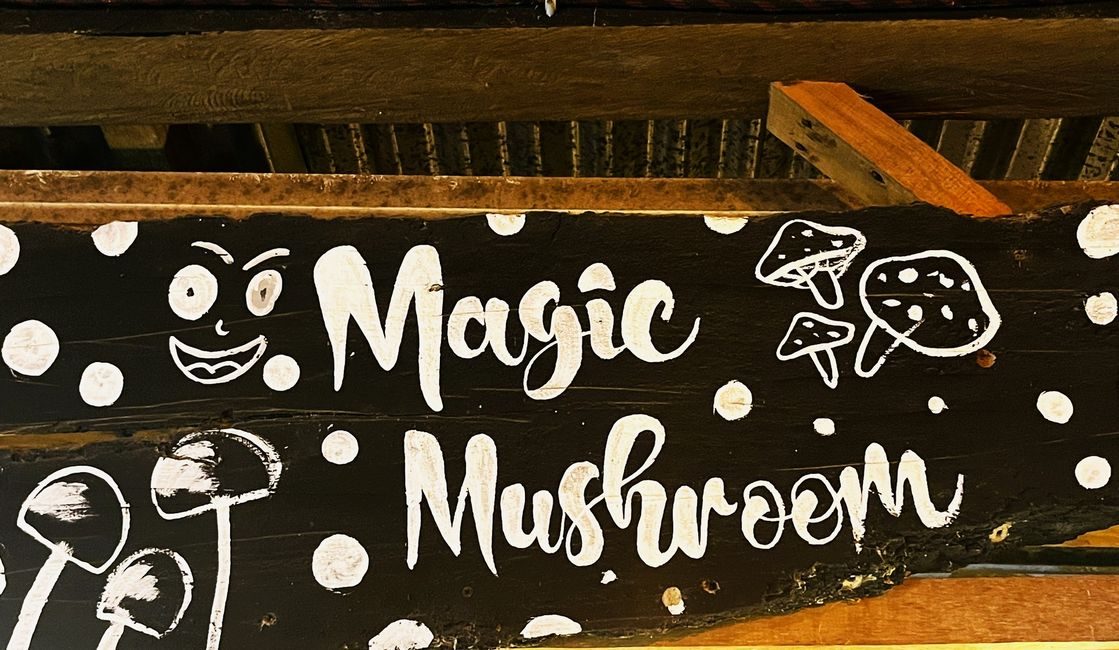 Magic
Mushroom